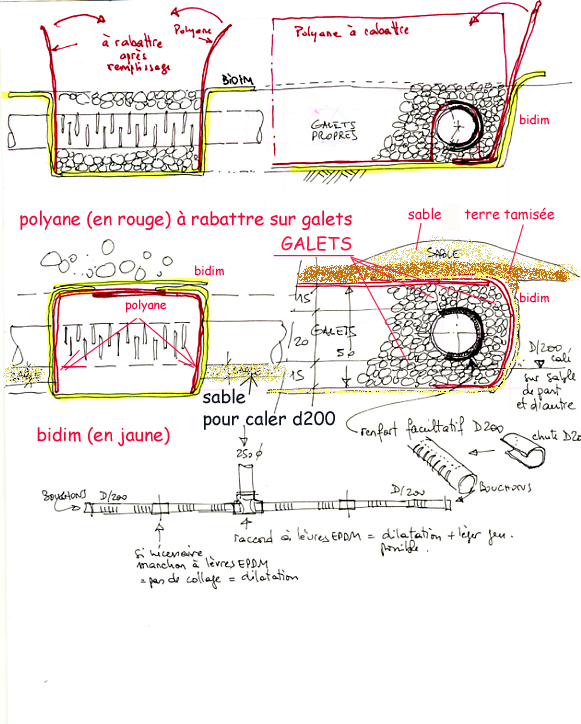 à rabattre
après
remplissage
Polyane
Polyane à rabattre
BiDIM
GALETS
PROPRES
bidim
polyane (en rouge) à rabattre sur galets
sable
terre tamisée
GALETS
SABLE
bidim
bidim
polyane
15
GALETS
20
50
15
D/200
calé
sur sable
de part
et d'autre
sable
pour caler d200
bidim (en jaune)
renfort facultatif D200
chute D20
250 φ
BOUCHONS
D/200
D/200
BOUCHONS
raccord à lèvres EPDM = dilatation + léger jeu
possible.
si nécessaire
manchon à lèvres EPDM
= pas de collage = dilatation